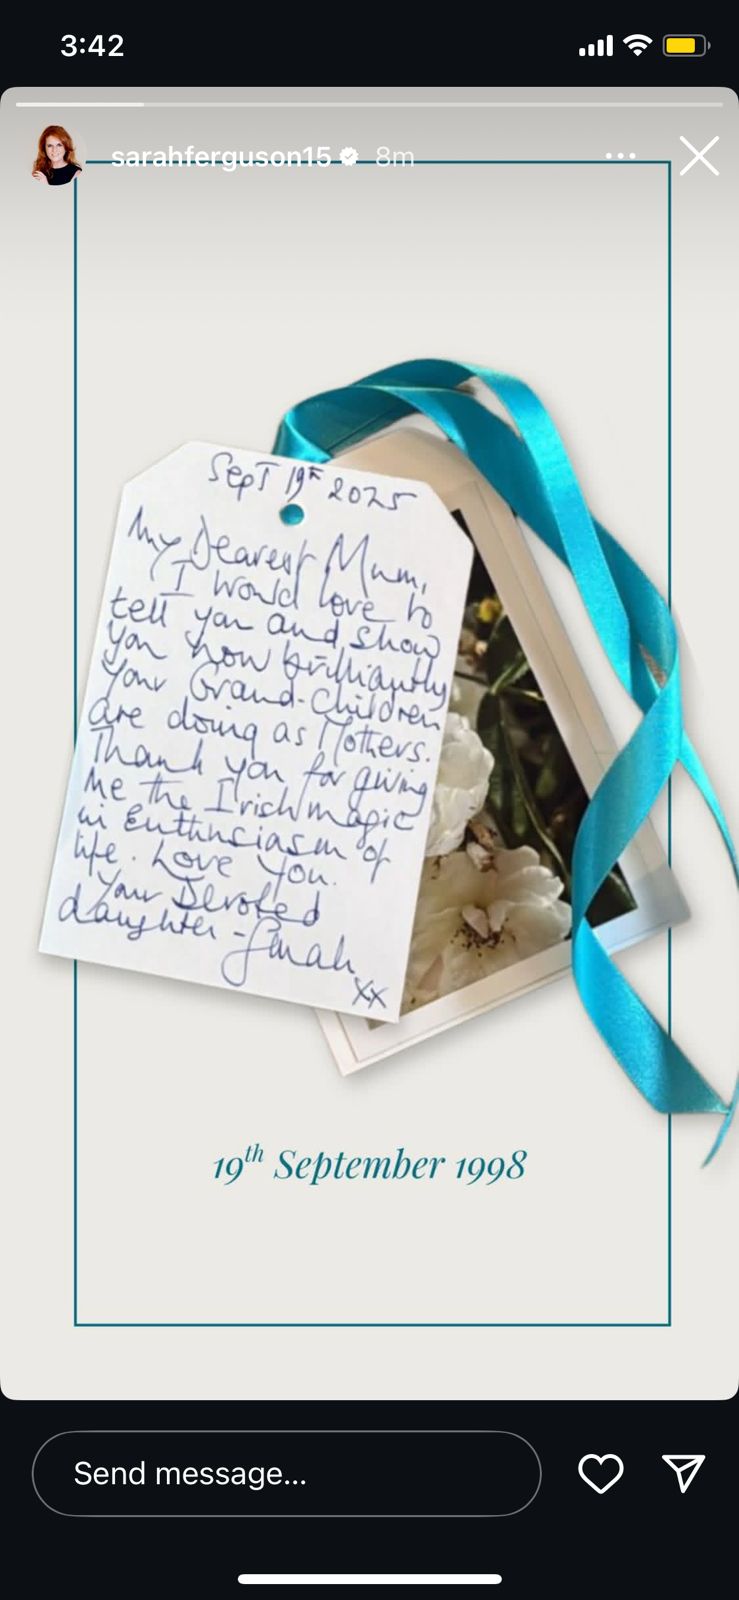 3:42
sarahferguson15 8m
Sept 19th 2025
My Dearest Mum,
I would love to
tell you and show
you how brilliantly
your Grand-Children
are doing as Mothers.
Thank you for giving
me the Irish magic
in Enthusiasm of
life. Love you.
Your Devoted
daughter - Sarah
xx
19th September 1998
Send message...